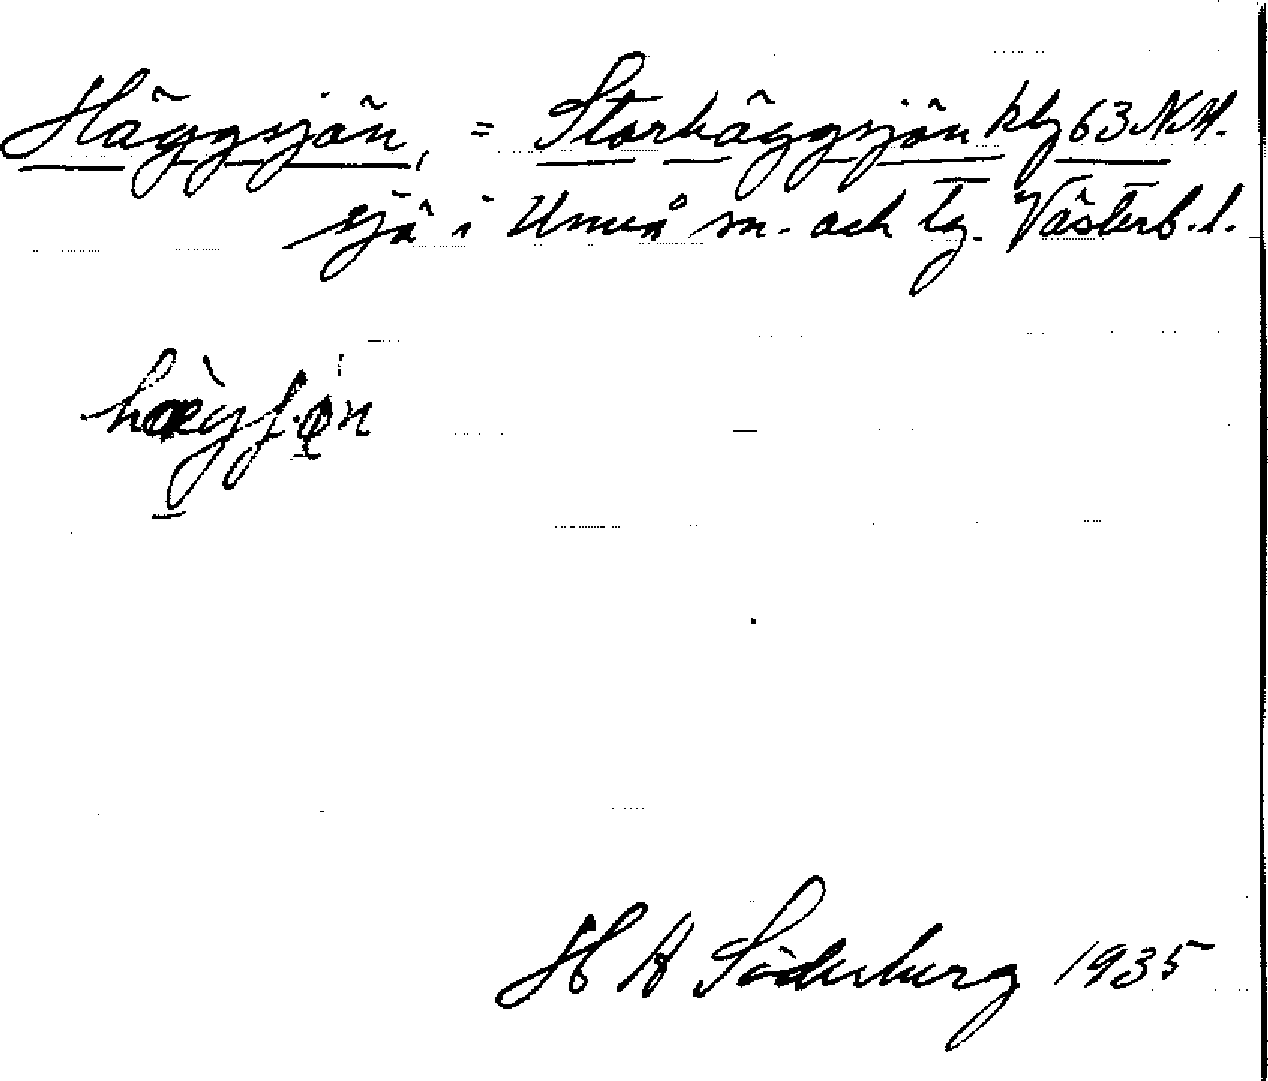 Häggsjön, = Storhäggsjön kbl 63 N.V.
sjö i Umeå sn. och tg. Västerb. l.
H A Söderberg 1935